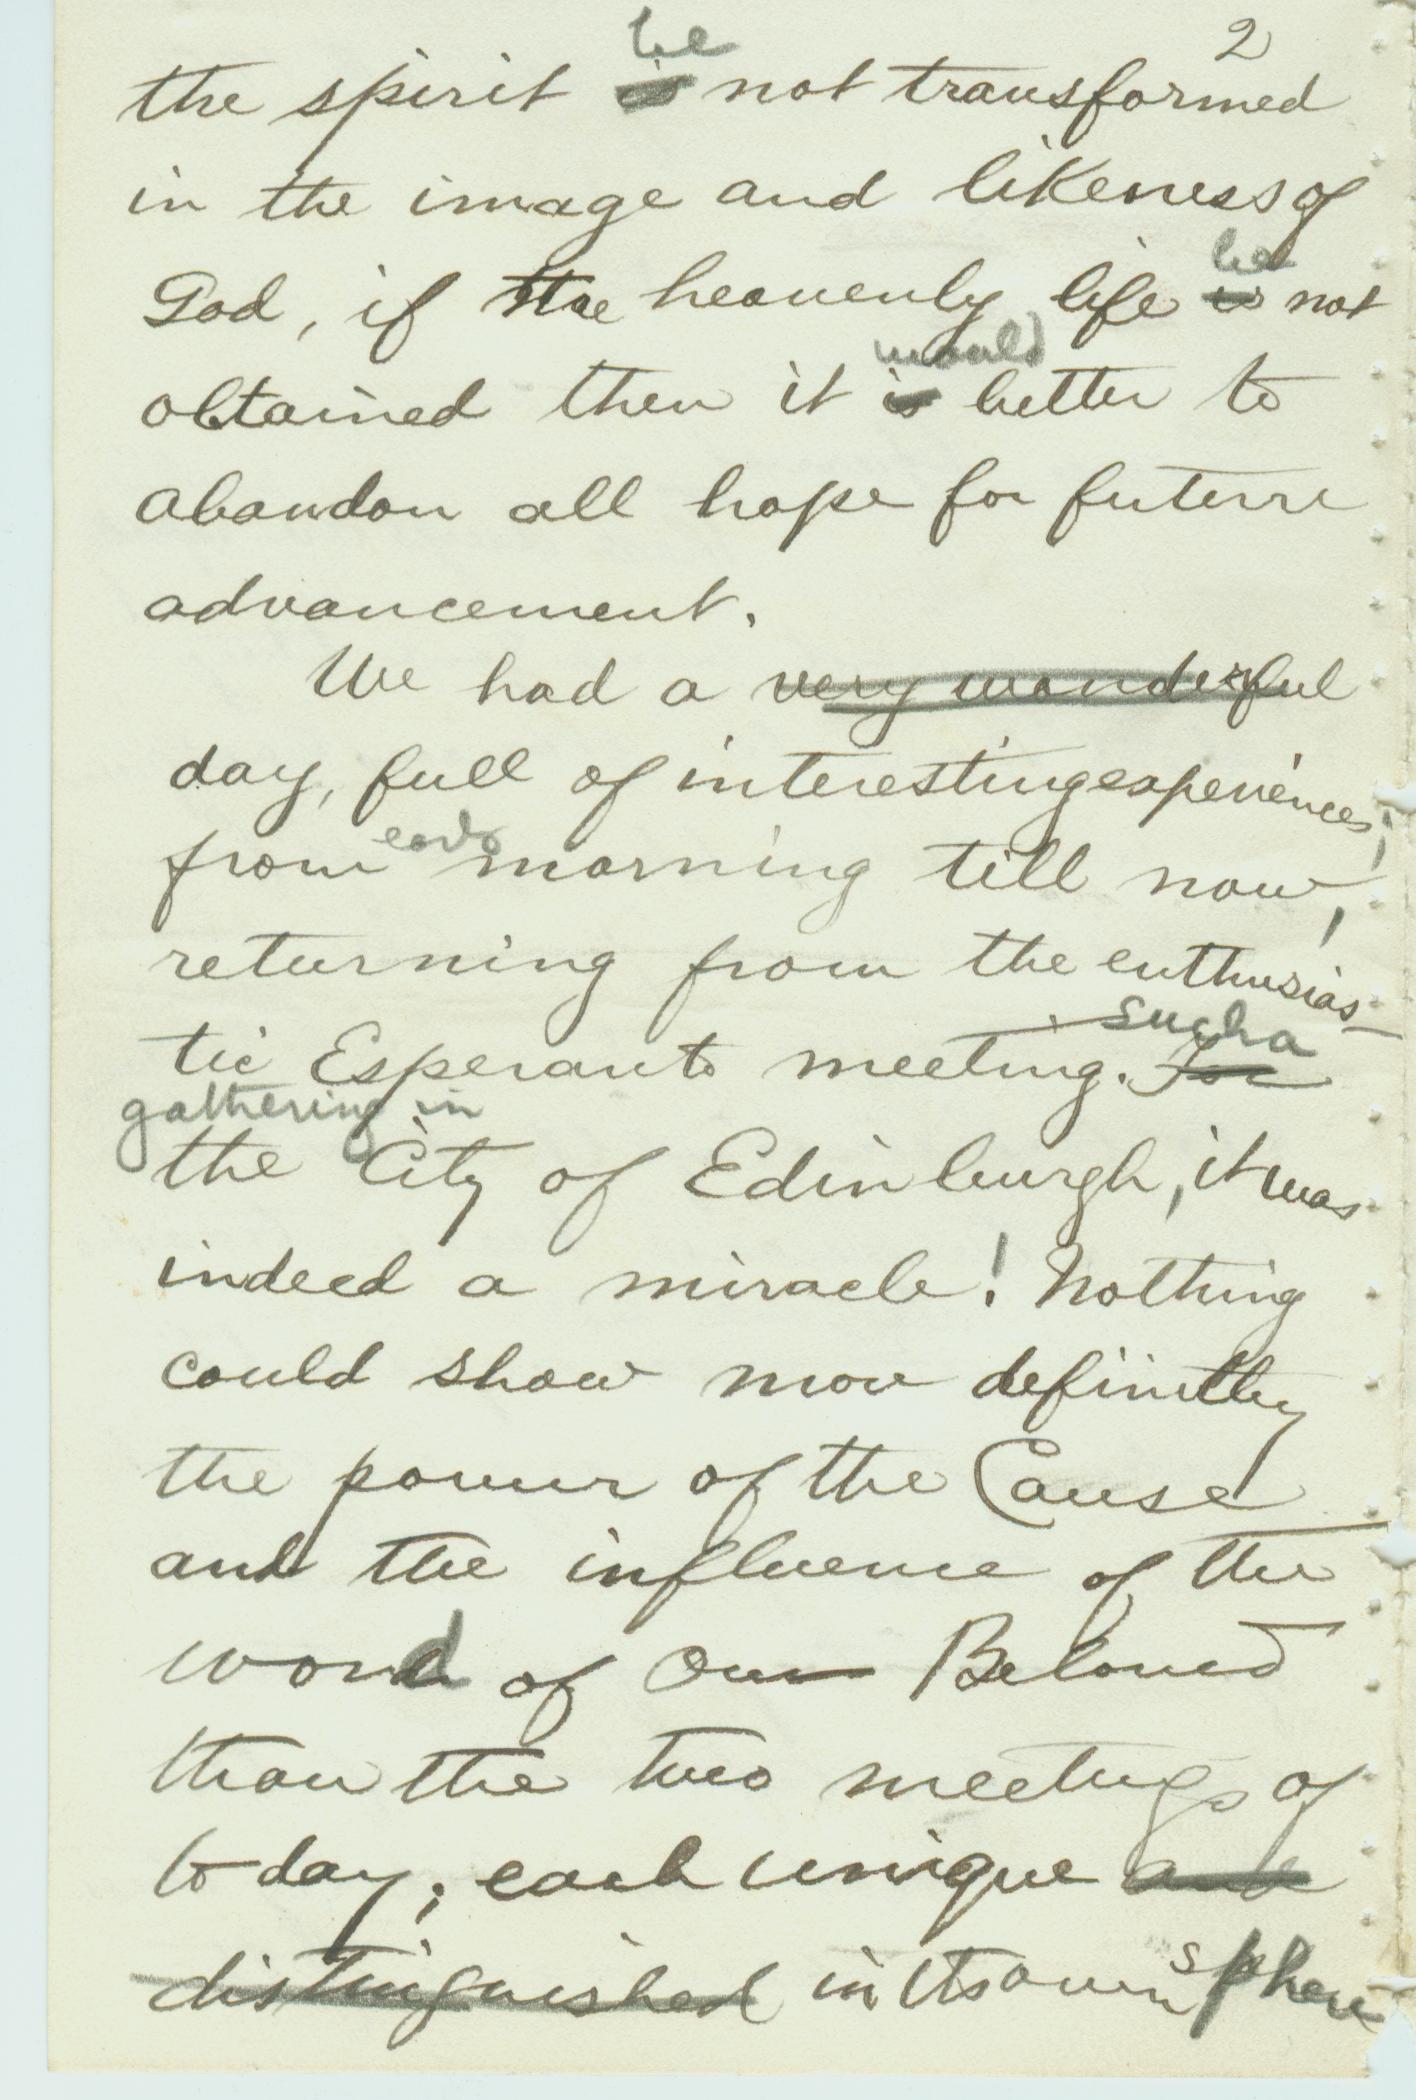 2
be
the spirit is not transformed
in the image and likeness of
be
God, if the heavenly life is not
would
obtained then it is better to
abandon all hope for future
advancement.
We had a very wonderful
day, full of interesting experiences;
early
from morning till now,
returning from the enthusias-
such a
tic Esperanto meeting. For
gathering in
the City of Edinburgh, it was
indeed a miracle! Nothing
could show more definitely
the power of the Cause
and the influence of the
word of Our Beloved
than the two meetings of
to day; each unique and
distinguished in its own sphere